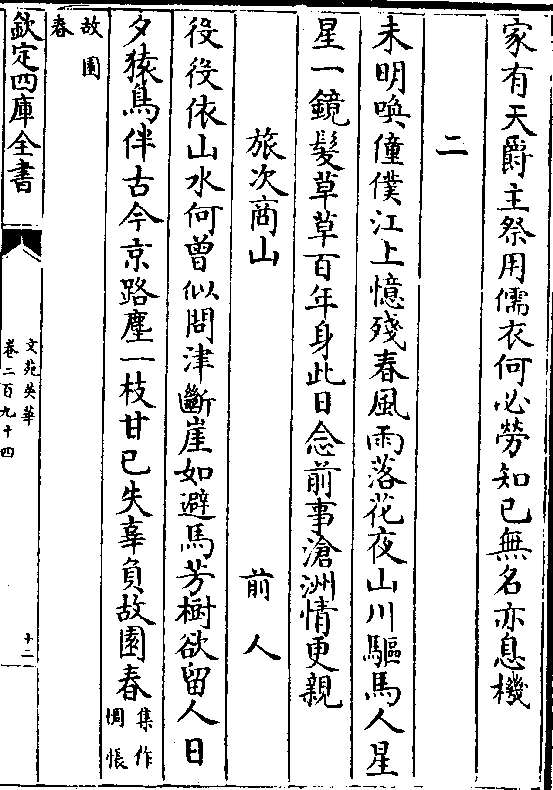 家有天爵主祭用儒衣何必勞知已無名亦息機
二
未明喚僮僕江上憶殘春風雨落花夜山川驅馬人星
星一鏡髮草草百年身此日念前事滄洲情更親
旅次商山 前人
役役依山水何曾似問津斷崖如避馬芳樹欲留人日
夕猿鳥伴古今京路塵一枝甘已失辜負故園春集作惆悵
故園春
欽定四庫全書
文苑英華
卷二百九十四
十二